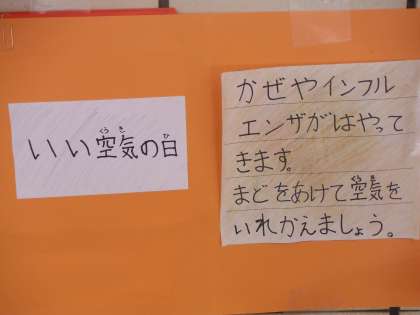 いい空気の日
かぜやインフル
エンザがはやって
きます。
まどをあけて空気を
いれかえましょう。